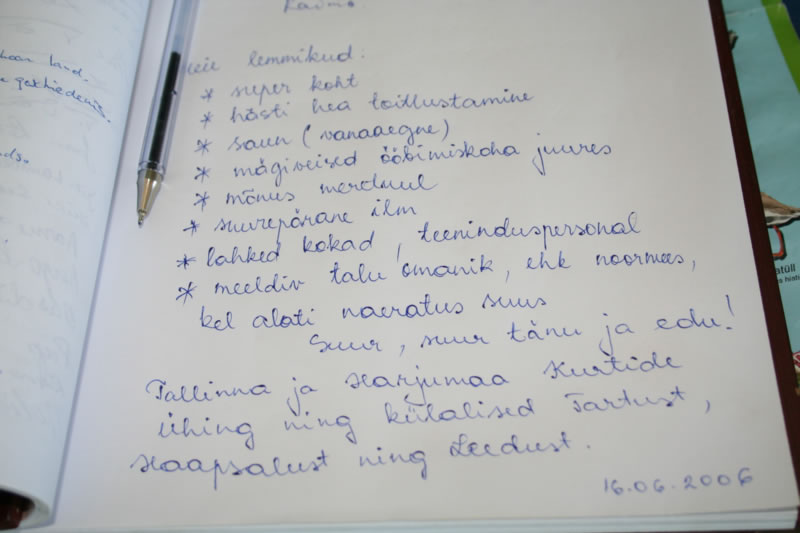 Raimo.
Meie lemmikud:
* super koht
* hästi hea toitlustamine
* saun (vanaaegne)
* mägiveised ööbimiskoha juures
* mõnus meretuul
* suurepärane ilm
* lahked kokad, teeninduspersonal
* meeldiv talu omanik, ehk noormees,
kel alati naeratus suus
Suur, suur tänu ja edu!
Tallinna ja Harjumaa Kurtide
Ühing ning külalised Tartust,
Haapsalust ning Leedust.
16.06.2006
land.
geschiedenis.